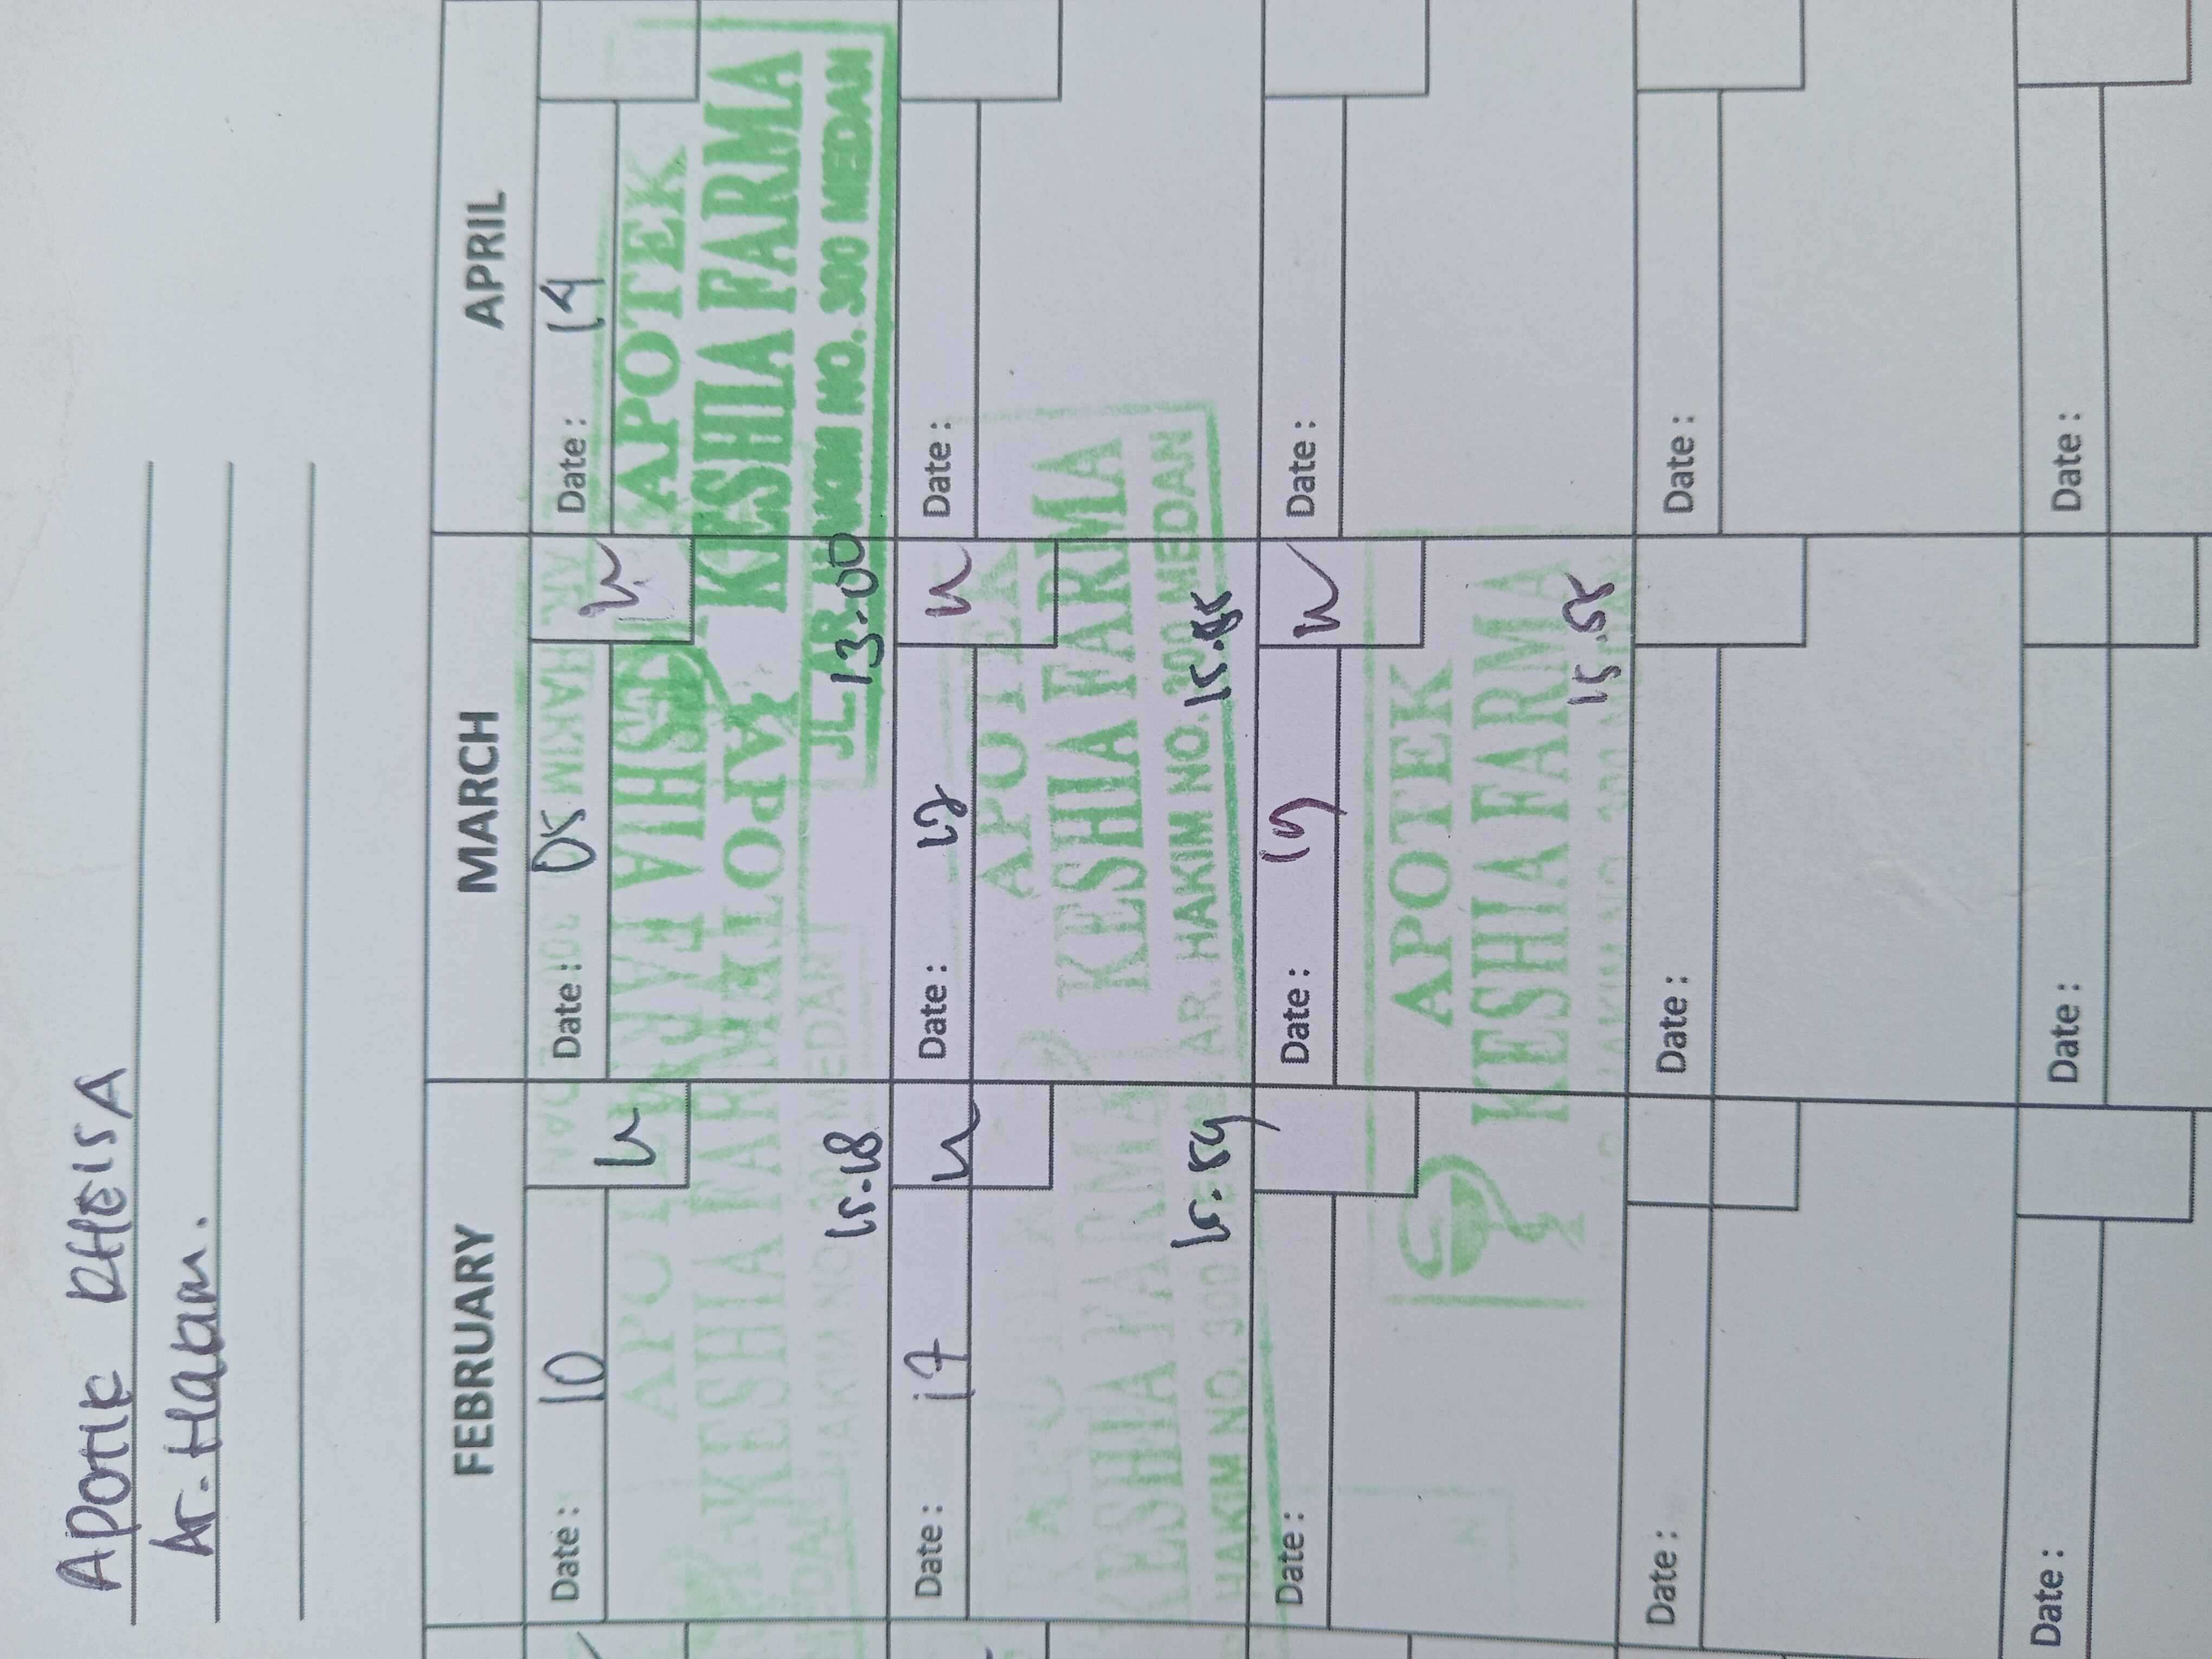 APOTIK KHEISA
Ar. Hakim.
FEBRUARY
MARCH
APRIL
Date : 10
Date : 05
Date : 14
APOTEK
KESHIA FARMA
JL. AR. HAKIM NO. 300 MEDAN
15.18
13.00
Date : 17
Date : 12
Date :
APOTEK
KESHIA FARMA
AR. HAKIM NO. 300 MEDAN
KESHIA FARMA
HAKIM NO. 300
15.59
Date :
Date : 19
Date :
APOTEK
KESHIA FARMA
15.55
Date :
Date :
Date :
Date :
Date :
Date :